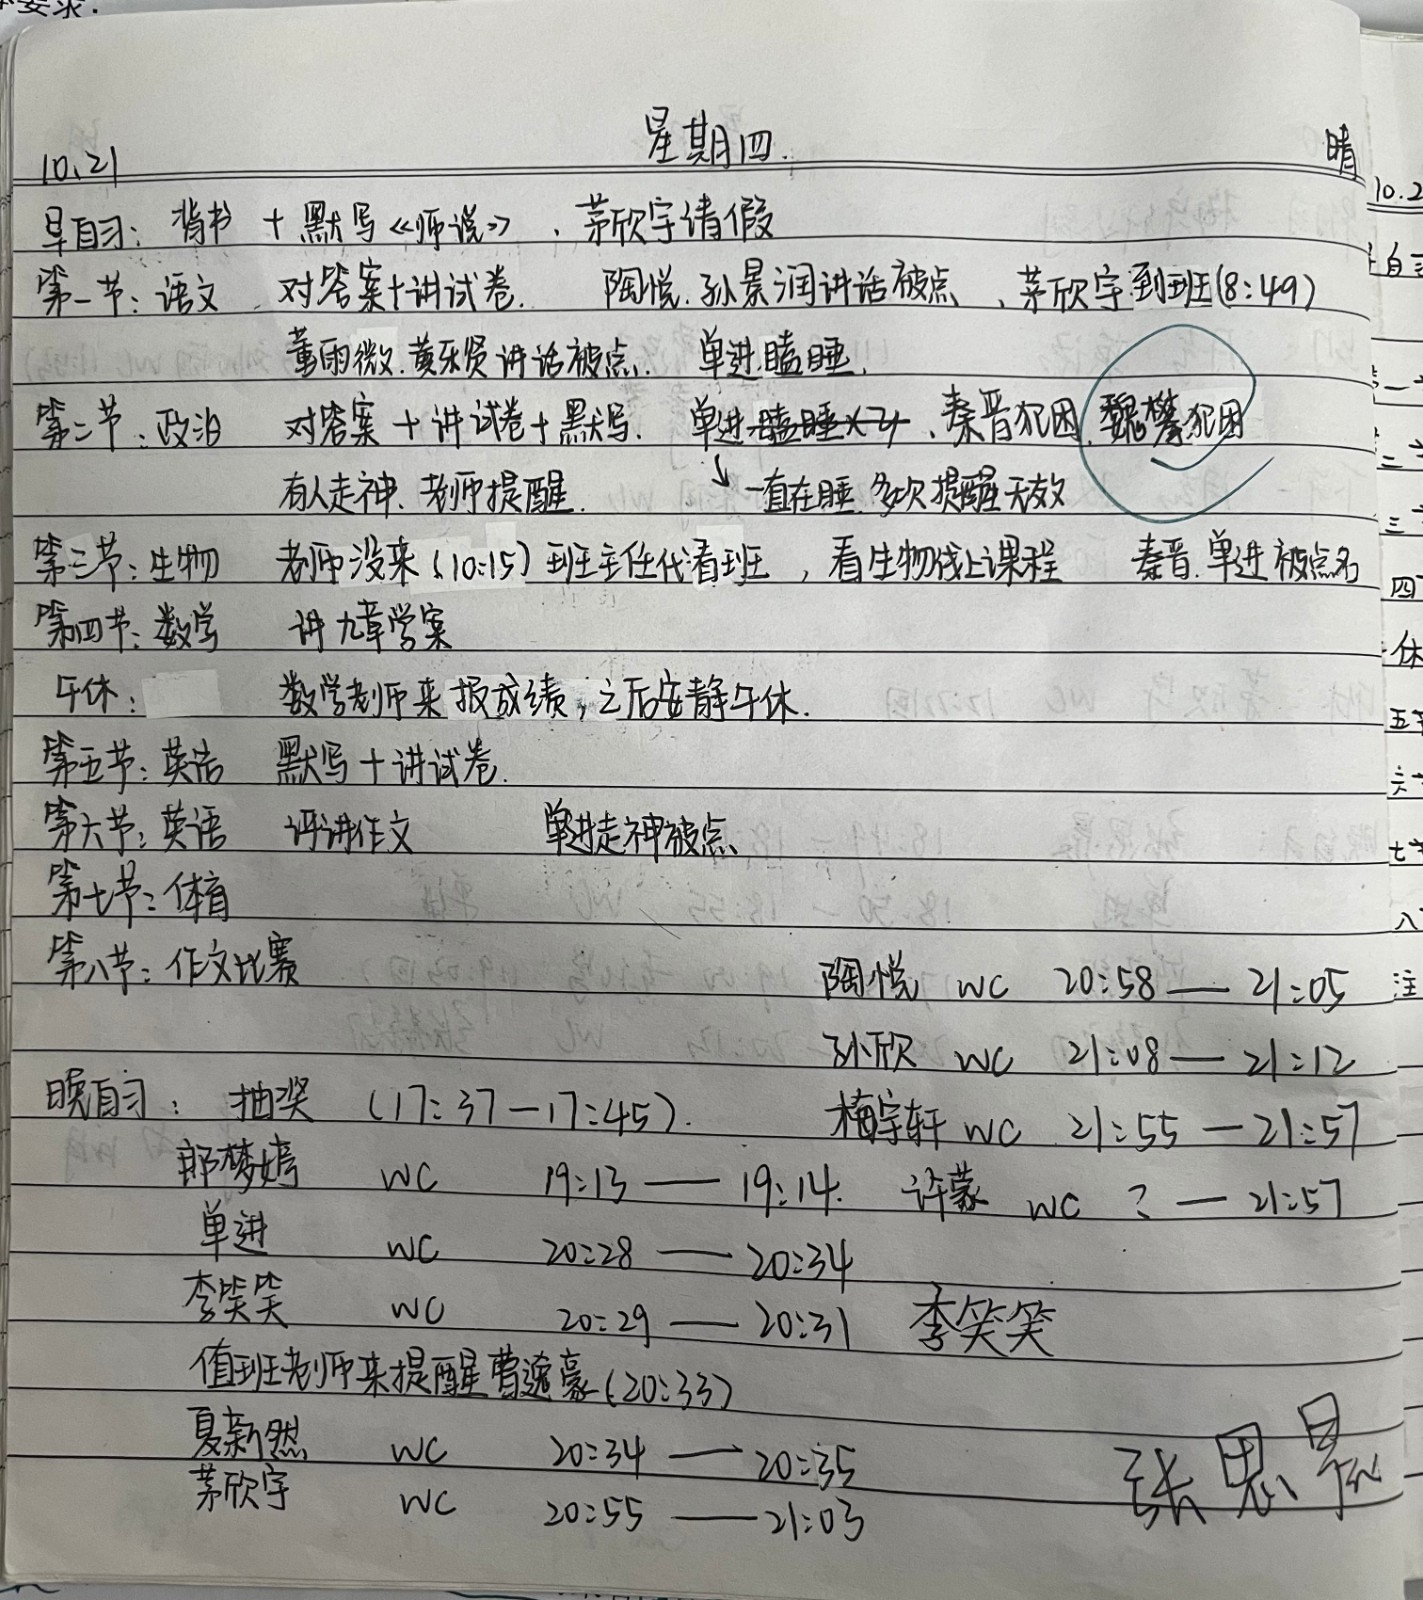 本要求:
10.21 星期四. 晴
早自习: 背书 + 默写《师说》、茅欣宇请假
第一节: 语文 对答案+讲试卷. 陶悦.孙景润讲话被点、茅欣宇到班(8:49)
董雨微.黄乐贤讲话被点. 单进瞌睡.
第二节: 政治 对答案+讲试卷+默写. 单进瞌睡×2、秦晋犯困、魏攀犯困
有人走神、老师提醒. ↓一直在睡.多次提醒无效
第三节: 生物 老师没来(10:15)班主任代看班, 看生物线上课程 秦晋.单进被点名
第四节: 数学 讲九章学案
午休: 数学老师来报成绩,之后安静午休.
第五节: 英语 默写+讲试卷.
第六节: 英语 评讲作文 单进走神被点
第七节: 体育
第八节: 作文比赛
陶悦 WC 20:58 — 21:05
孙欣 WC 21:08 — 21:12
晚自习: 抽奖 (17:37—17:45). 梅宇轩 WC 21:55 — 21:57
郎梦嫣 WC 19:13 — 19:14. 许蒙 WC ? — 21:57
单进 WC 20:28 — 20:34
李笑笑 WC 20:29 — 20:31 李笑笑
值班老师来提醒曹逸豪(20:33)
夏新然 WC 20:34 — 20:35
茅欣宇 WC 20:55 — 21:03
张思晨
10.2
自习
一
二
三
四
休
五
六
七
八
注